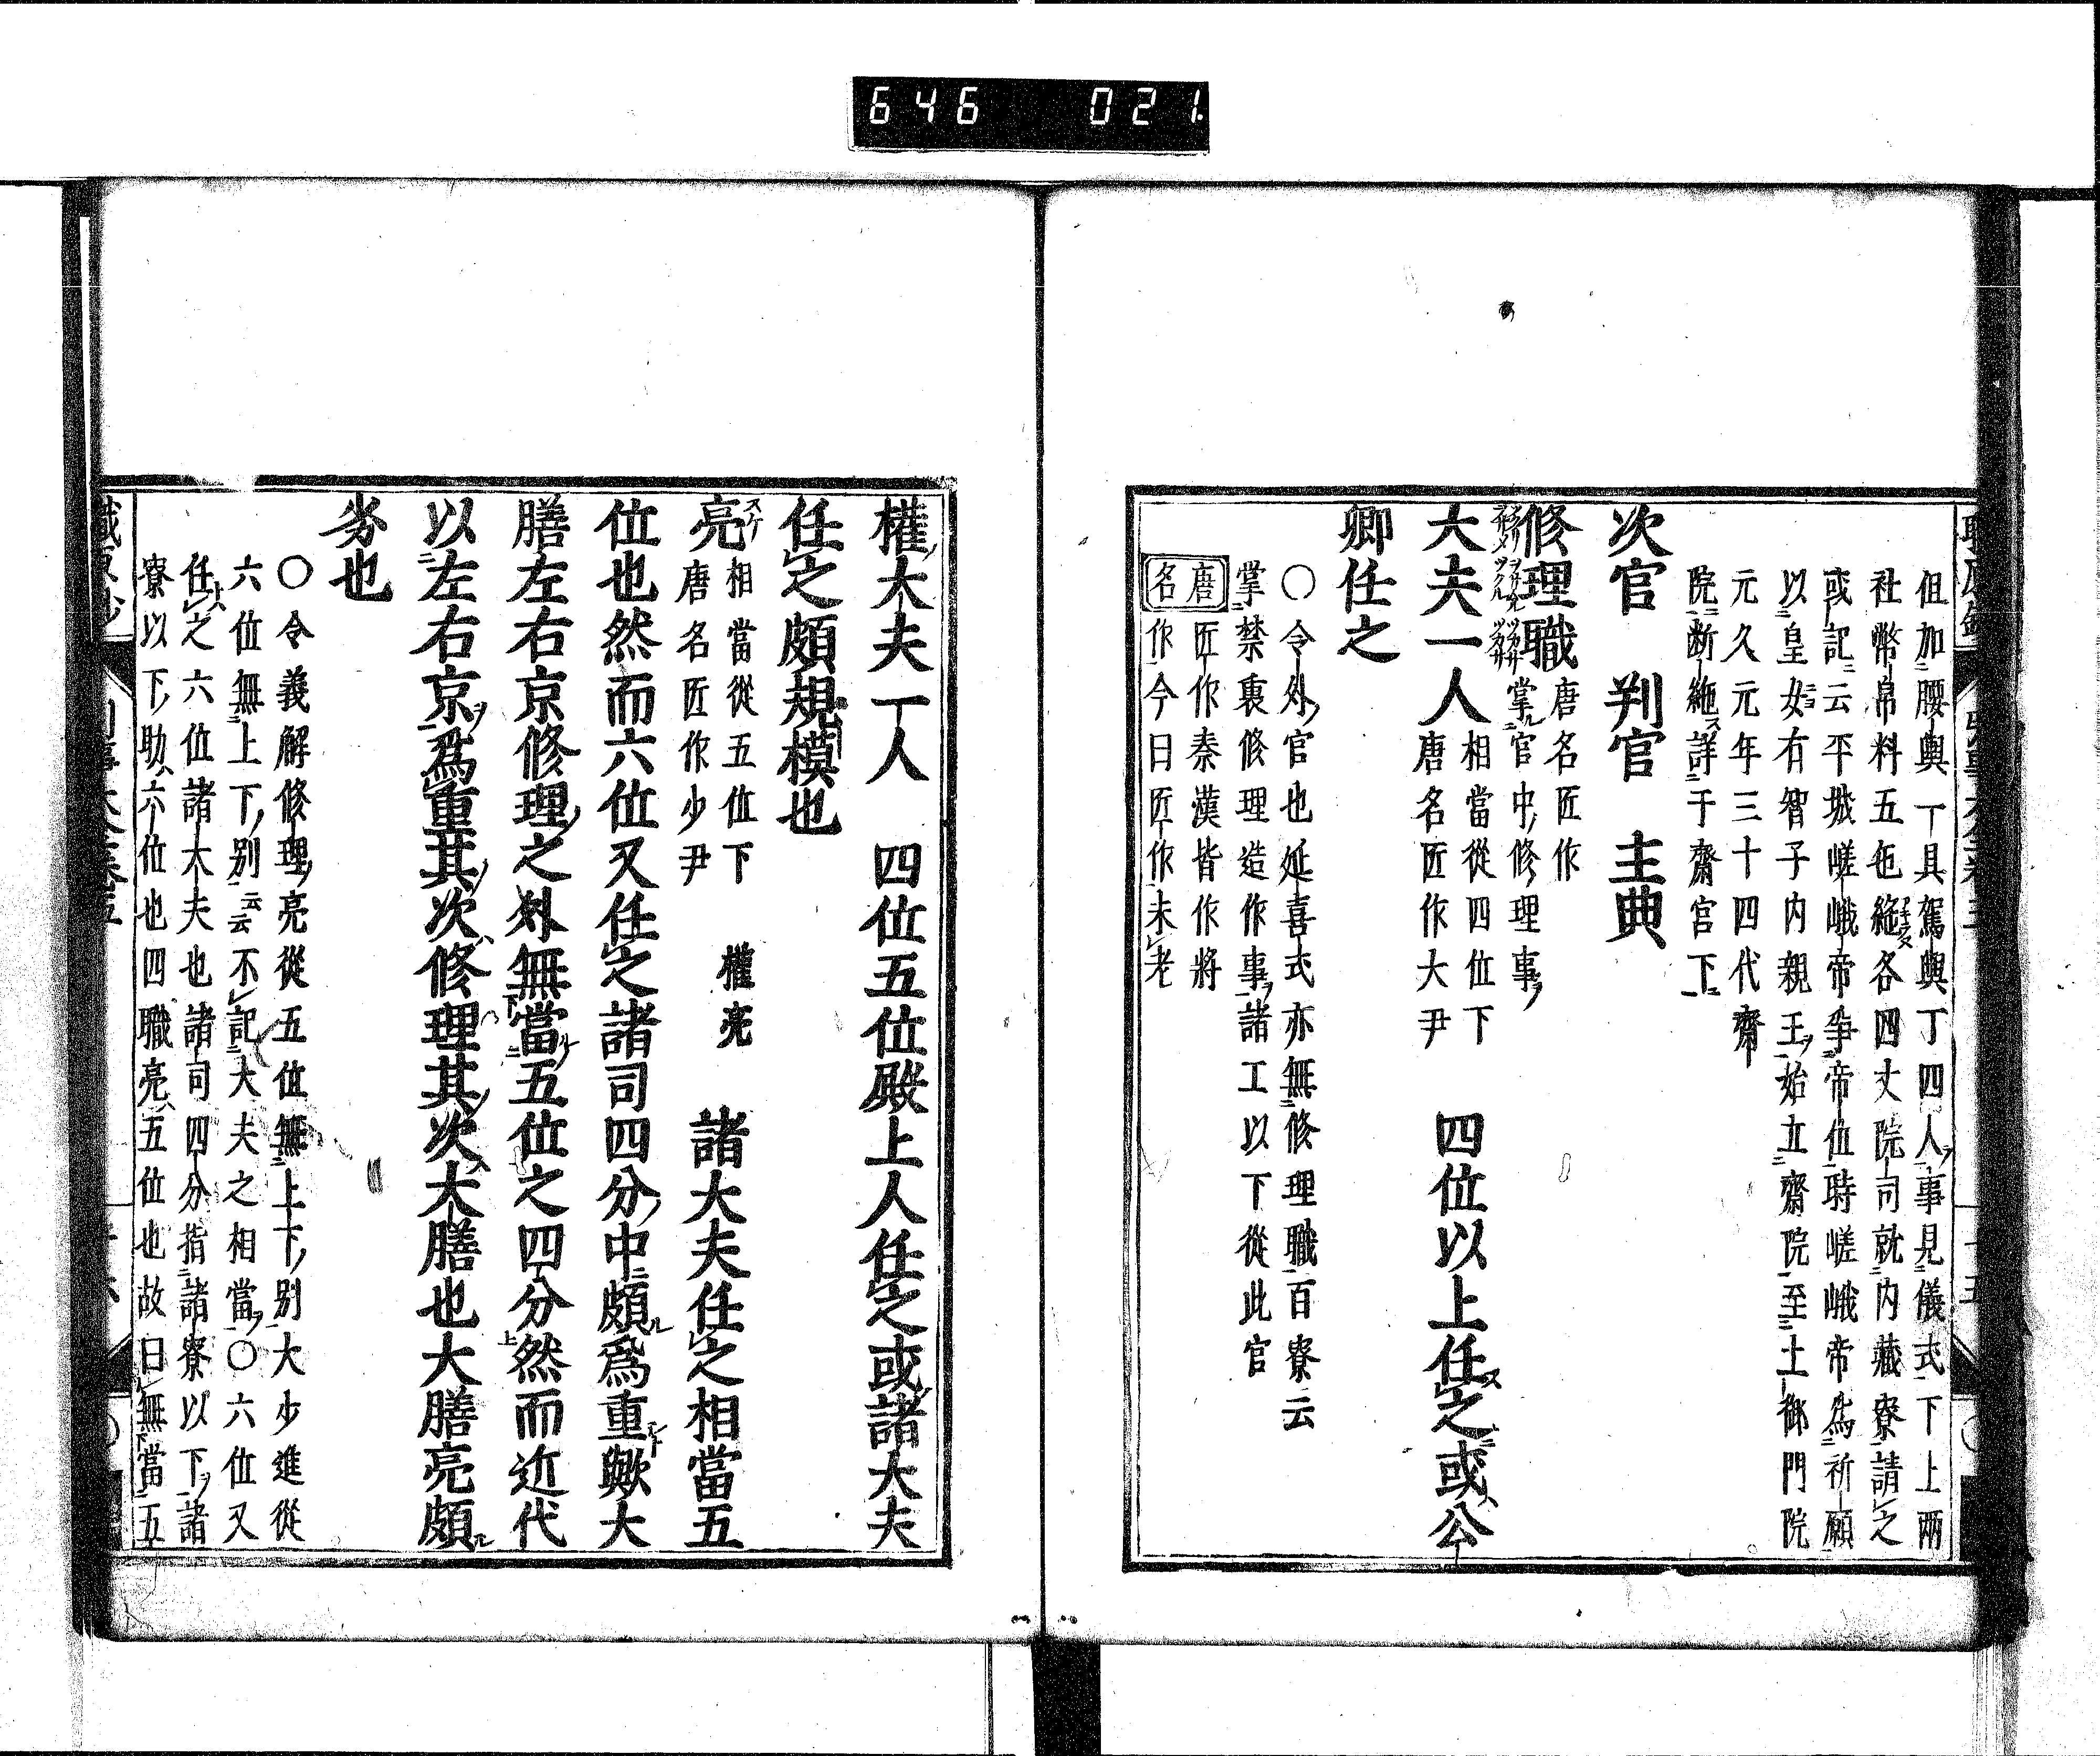 646 021
伹加腰輿一具駕輿丁四人事見儀式下上兩
社幣帛料五色絁各四丈院司就内藏寮請之
或記云平城嵯峨帝爭帝位時嵯峨帝爲祈願
以皇女有智子内親王始立齋院至土御門院
元久元年三十四代齋
院断絶詳于齋宮下
次官 判官 主典
修理職 唐名匠作
掌官中修理事
大夫一人 相當從四位下
唐名匠作大尹
四位以上任之或公
卿任之
〇令外官也延喜式亦無修理職百寮云
掌禁裏修理造作事諸工以下從此官
唐名 匠作秦漢皆作將
作今日匠作未老
權大夫一人 四位五位殿上人任之或諸大夫
任之頗規模也
亮 スケ 相當從五位下 權亮
唐名匠作少尹
諸大夫任之相當五
位也然而六位又任之諸司四分中頗爲重歟大
膳左右京修理之外無當五位之四分然而近代
以左右京爲重其次修理其次大膳也大膳亮頗
劣也
〇令義解修理亮從五位無上下別大少進從
六位無上下別云云不記大夫之相當〇六位又
任之六位諸大夫也諸司四分指諸寮以下諸
寮以下助六位也四職亮五位也故曰無當五